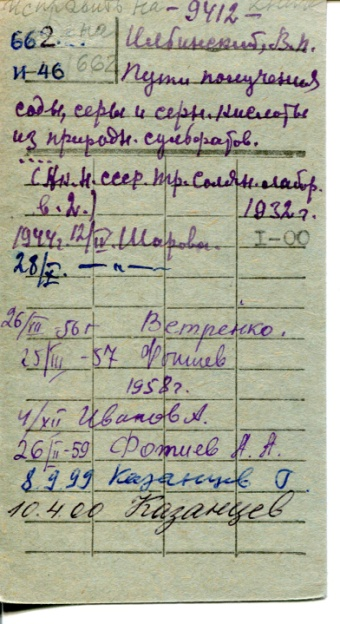 исправить на - 9412 -
662. на Ильинский, В.П.
И-46 662 Пути получения
соды, серы и серн. кислоты
из природн. сульфатов.
(Ак. Н. СССР. Тр. Солян. лабор.
в. 2.) 1932 г.
1944 г. 12/IV. Шарова. I-00
28/V. — " —
26/VII -56 г Ветренко.
25/III -57 Фотиев
1958 г.
4/XII Иванов А.
26/II -59 Фотиев А. А.
8.9.99 Казанцев Г.
10.4.00 Казанцев